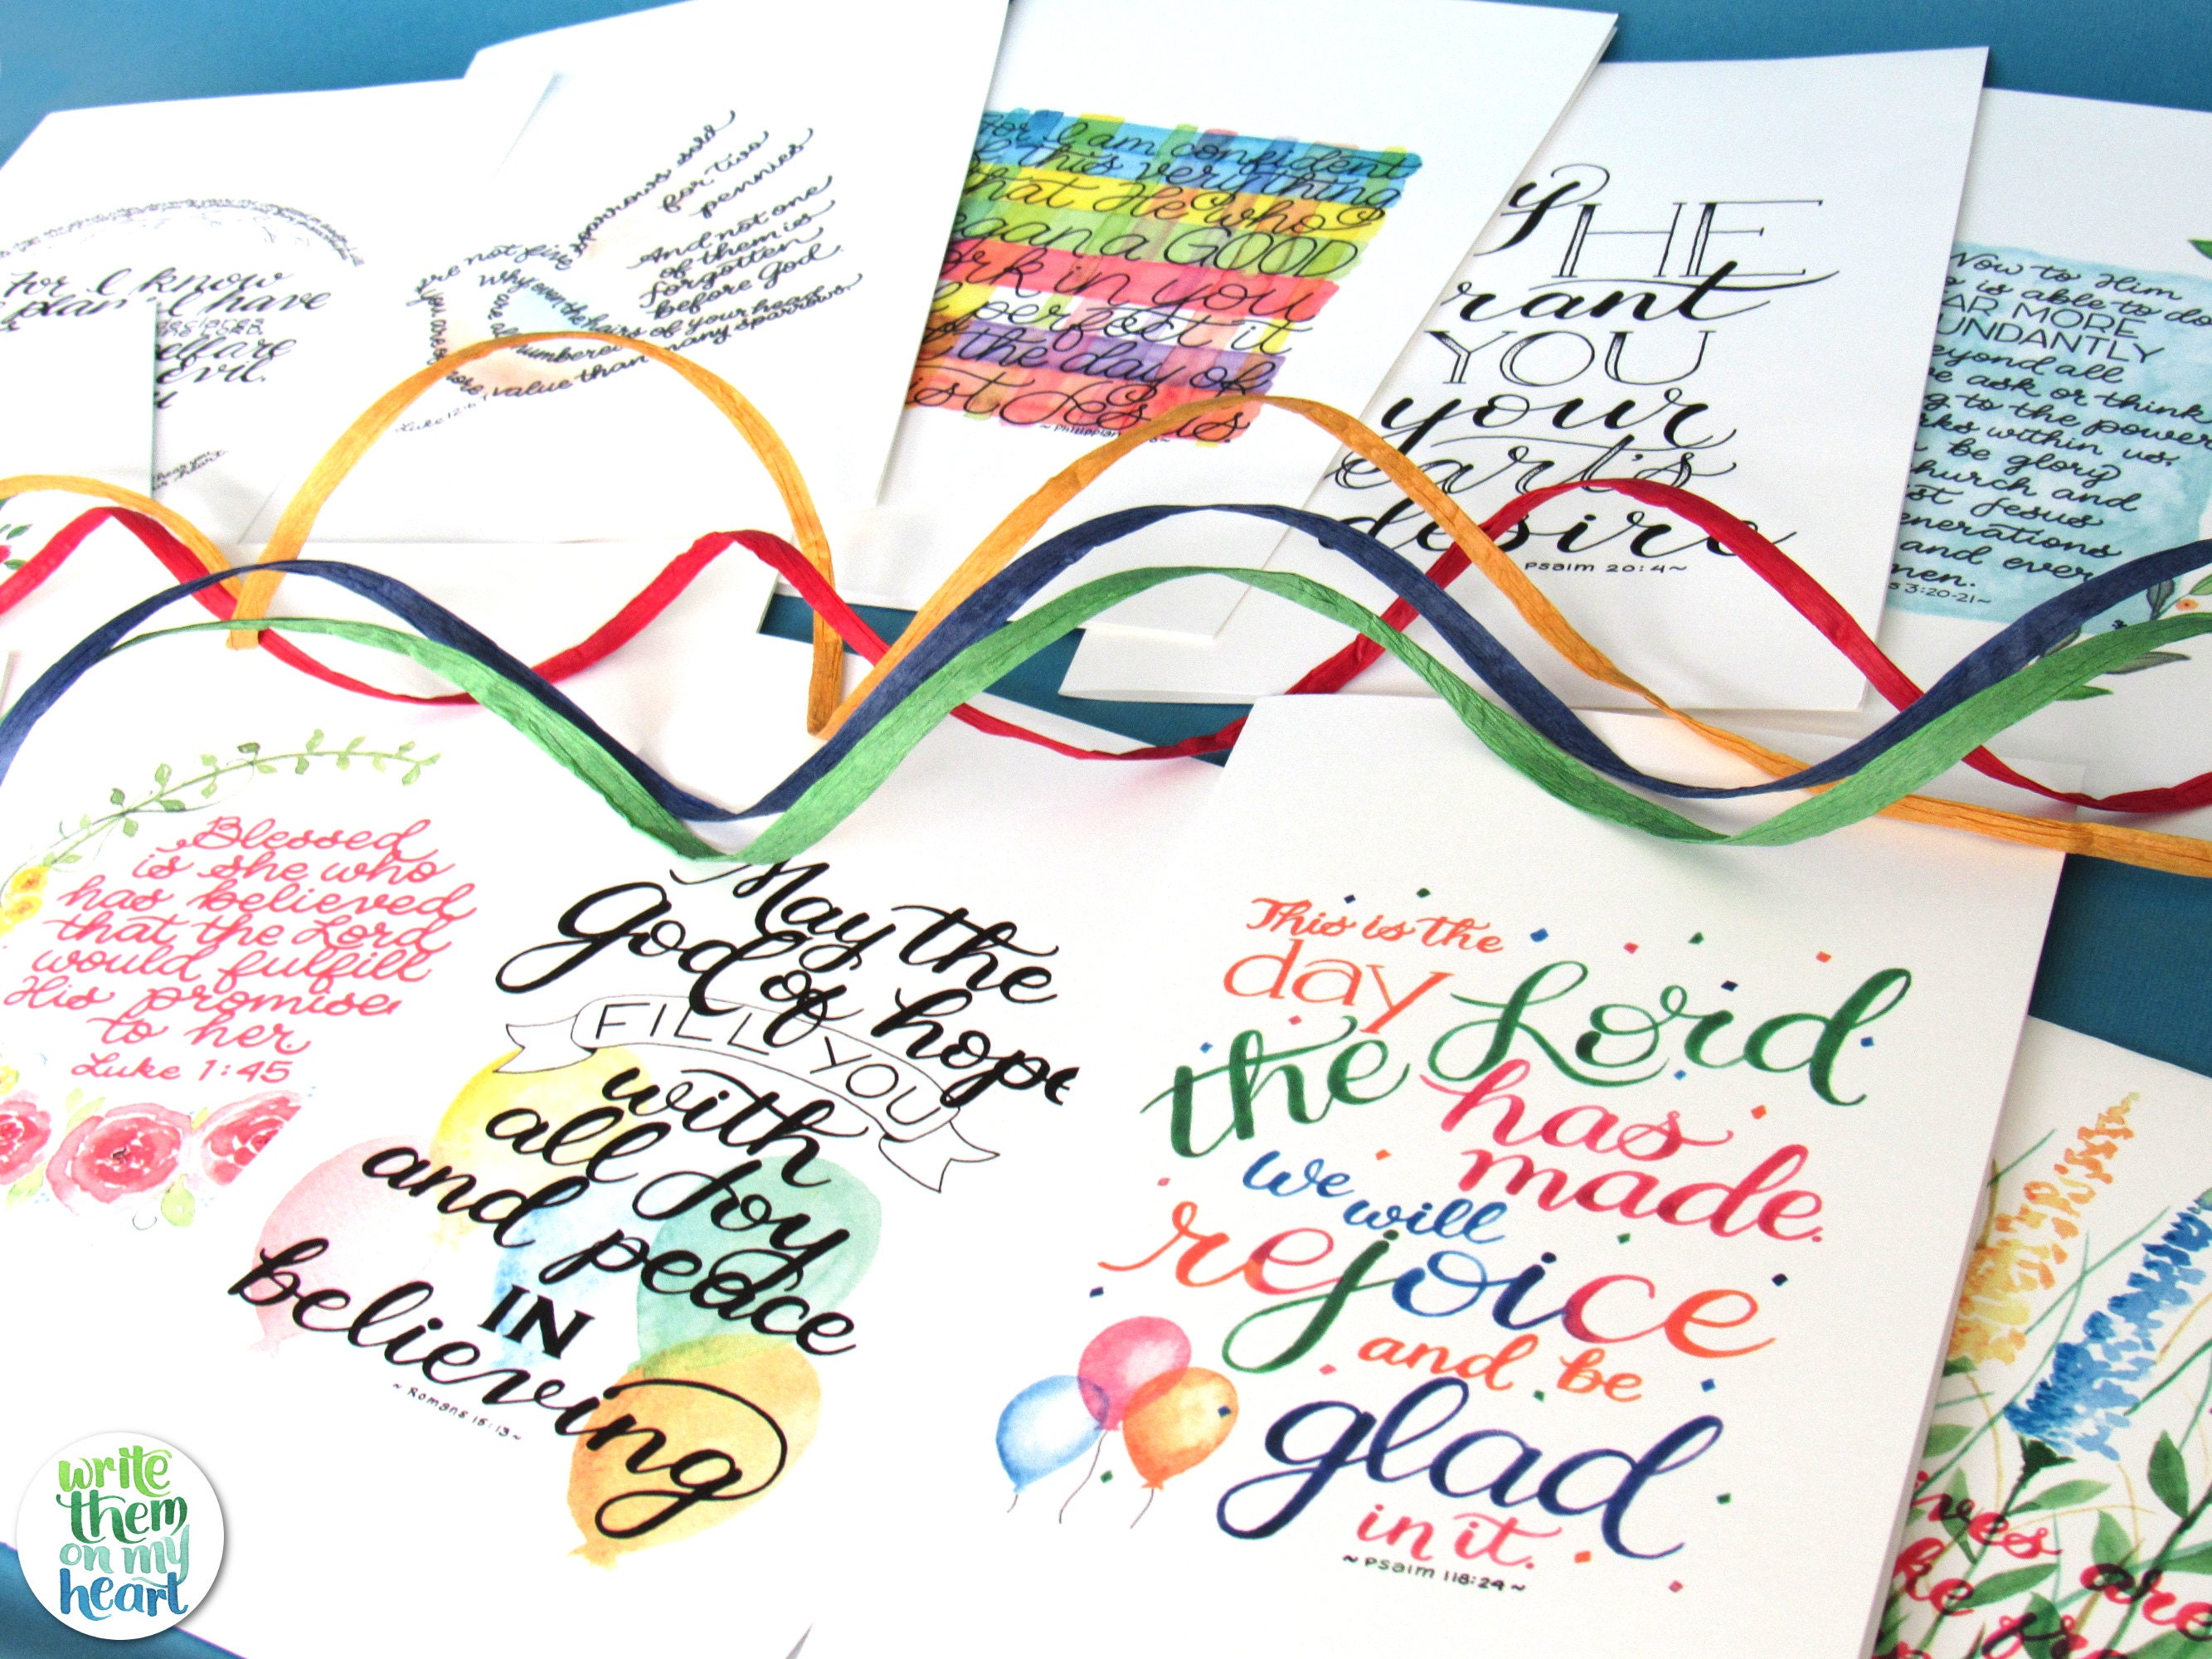 For I know
I have
welfare
evil.
are not five sparrows sold
for two
pennies
And not one
of them is
forgotten
before God.
Why even the hairs of your head
are all numbered
you are of more value than many sparrows.
Luke 12:6
For I am confident
of this very thing
that He who
began a GOOD
work in you
perfect it
the day of
Christ Jesus.
THE
YOU
your
desire
Psalm 20:4~
Now to Him
is able to do
FAR MORE
ABUNDANTLY
beyond all
we ask or think
to the power
works within us.
be glory
church and
Jesus
generations
and ever
3:20-21~
Blessed
is she who
has believed
that the Lord
would fulfill
His promise
to her.
Luke 1:45
May the
God of hope
FILL YOU
with
all joy
and peace
IN
believing
~Romans 15:13~
This is the
day
the Lord
has
made.
We
will
rejoice
and be
glad
in it.
~Psalm 118:24~
are
write
them
on my
heart